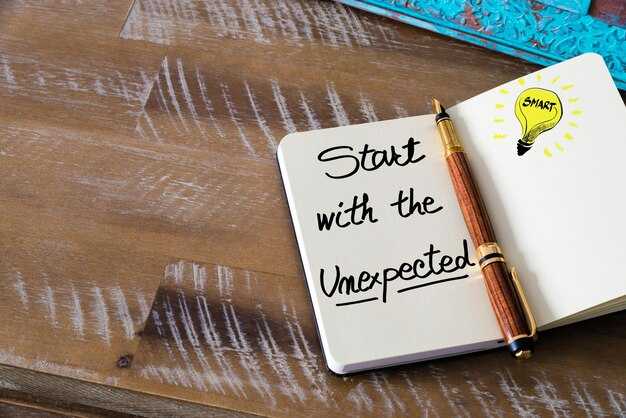 Start
with the
Unexpected
SMART